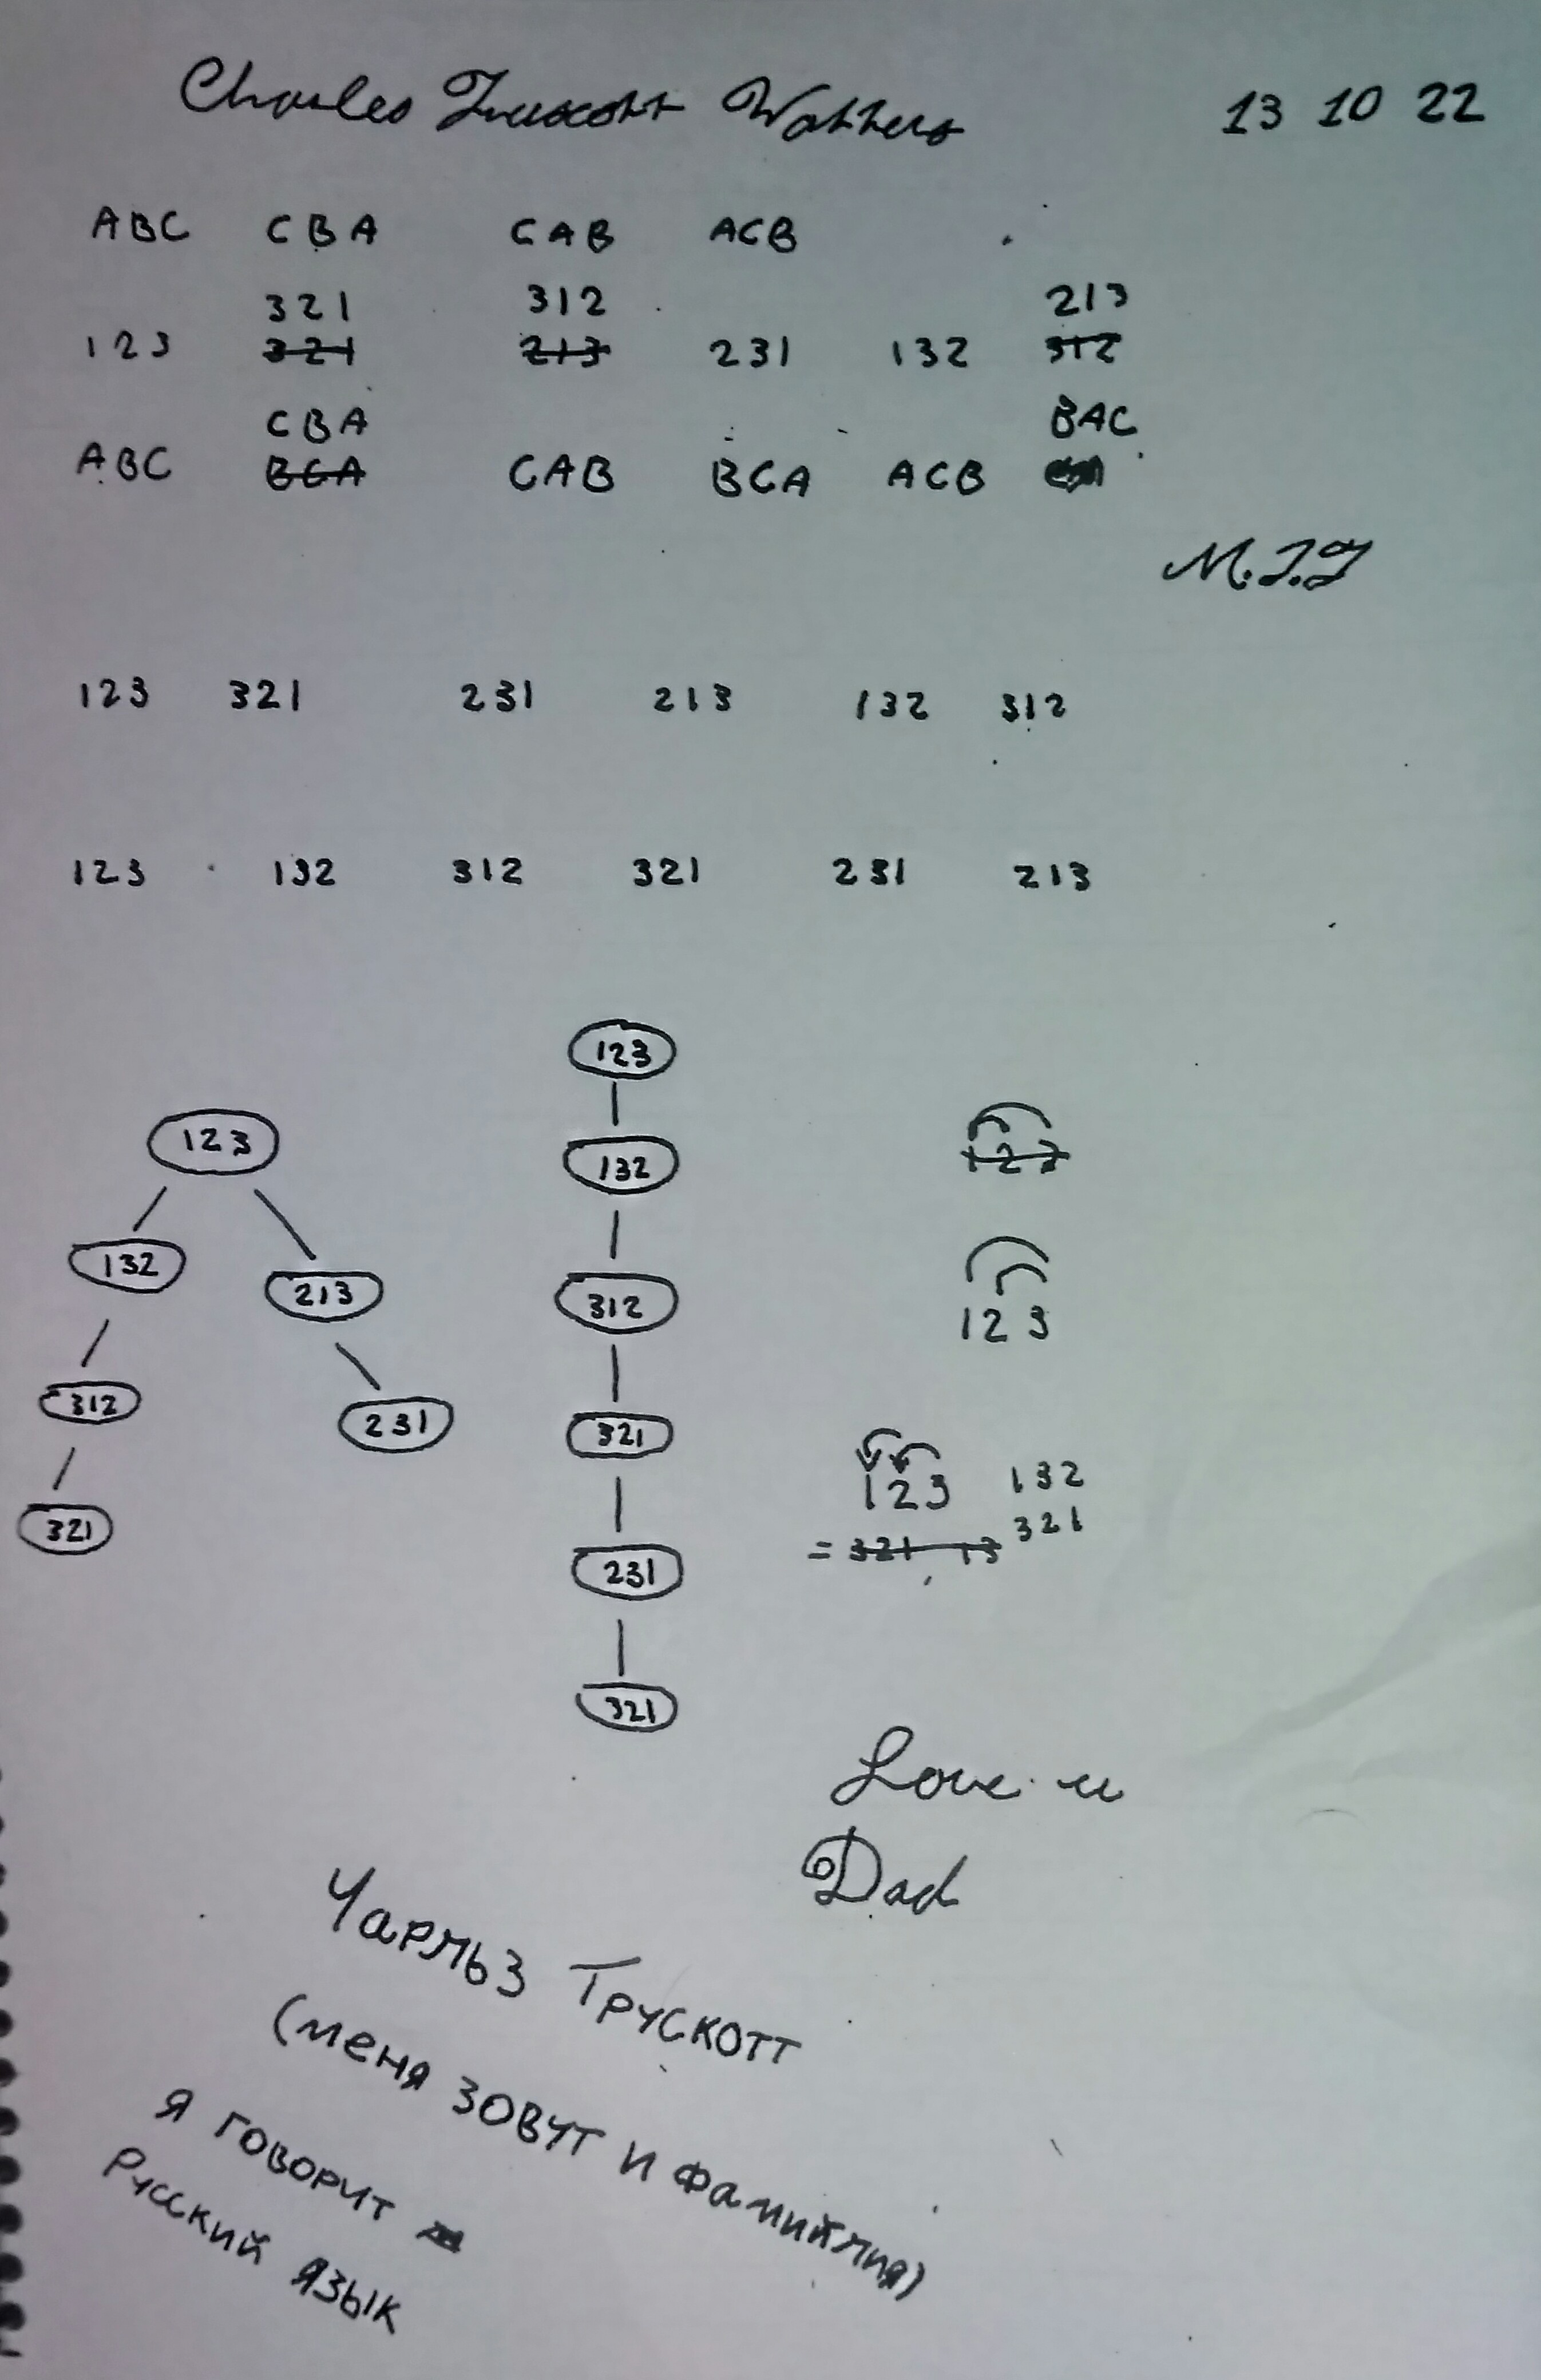 Charles Truscott Watters 13 10 22
ABC CBA CAB ACB
321 312 213
123 321 213 231 132 312
CBA BAC
ABC BCA CAB BCA ACB
123 321 231 213 132 312
123 132 312 321 231 213
123
132
213
312
231
321
123
132
312
321
231
321
123
123
123 132
= 321 13 321
Love u
Dad
Чарльз Трускотт
(меня зовут и фамийлия)
я говорит
русский язык